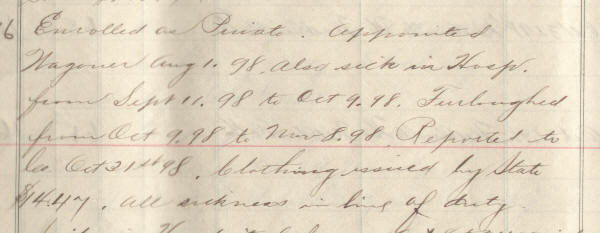 6 Enrolled as Private. Appointed
Wagoner Aug 1. 98. Also sick in Hosp.
from Sept 11. 98 to Oct 9. 98. Furloughed
from Oct 9. 98 to Nov 8. 98. Reported to
Co. Oct 31st 98. Clothing issued by State
$14.47. All sickness in line of duty.